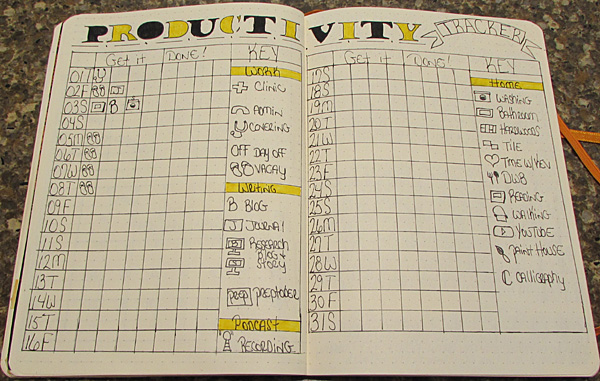 PRODUCTIVITY
TRACKER
GET IT DONE!
KEY
01T
02F
03S B
04S
05M
06T
07W
08T
09F
10S
11S
12M
13T
14W
15T
16F
WORK
CLINIC
ADMIN
COVERING
OFF DAY OFF
VACAY
WRITING
B BLOG
J JOURNAL
RESEARCH
BLOG &
STORY
PODCAST
RECORDING
GET IT DONE!
KEY
18S
19M
20T
21W
22T
23F
24S
25S
26M
27T
28W
29T
30F
31S
HOME
WASHING
BATHROOM
HARDWOODS
TILE
DWB
READING
WALKING
YOUTUBE
PAINT HOUSE
C CALLIGRAPHY